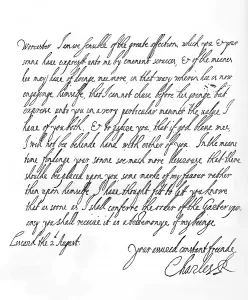 Worcester I am sensible of the greate affection, which you & your
sonne have expressed unto me by eminent services, & of the meanes
he may have of doinge me more in that way wherein hee is now
engagenge himself, that I cannot chuse before hee goe, but
expresse unto you in a very particular manner the value I
have of you both, & to assure you, that if God blesse mee,
I will not be behinde hand with either of you. In the meane
time findinge your sonne much more desierouse that there
should be placed upon you some marke of my favour rather
then upon himself, I have thought fit to let you knowe
that as soone as I shall conferre the order of the Garter upon
any you shall receive it as a testemonye of my beinge
the 2 August.
Your assured constant frende,
Charles R